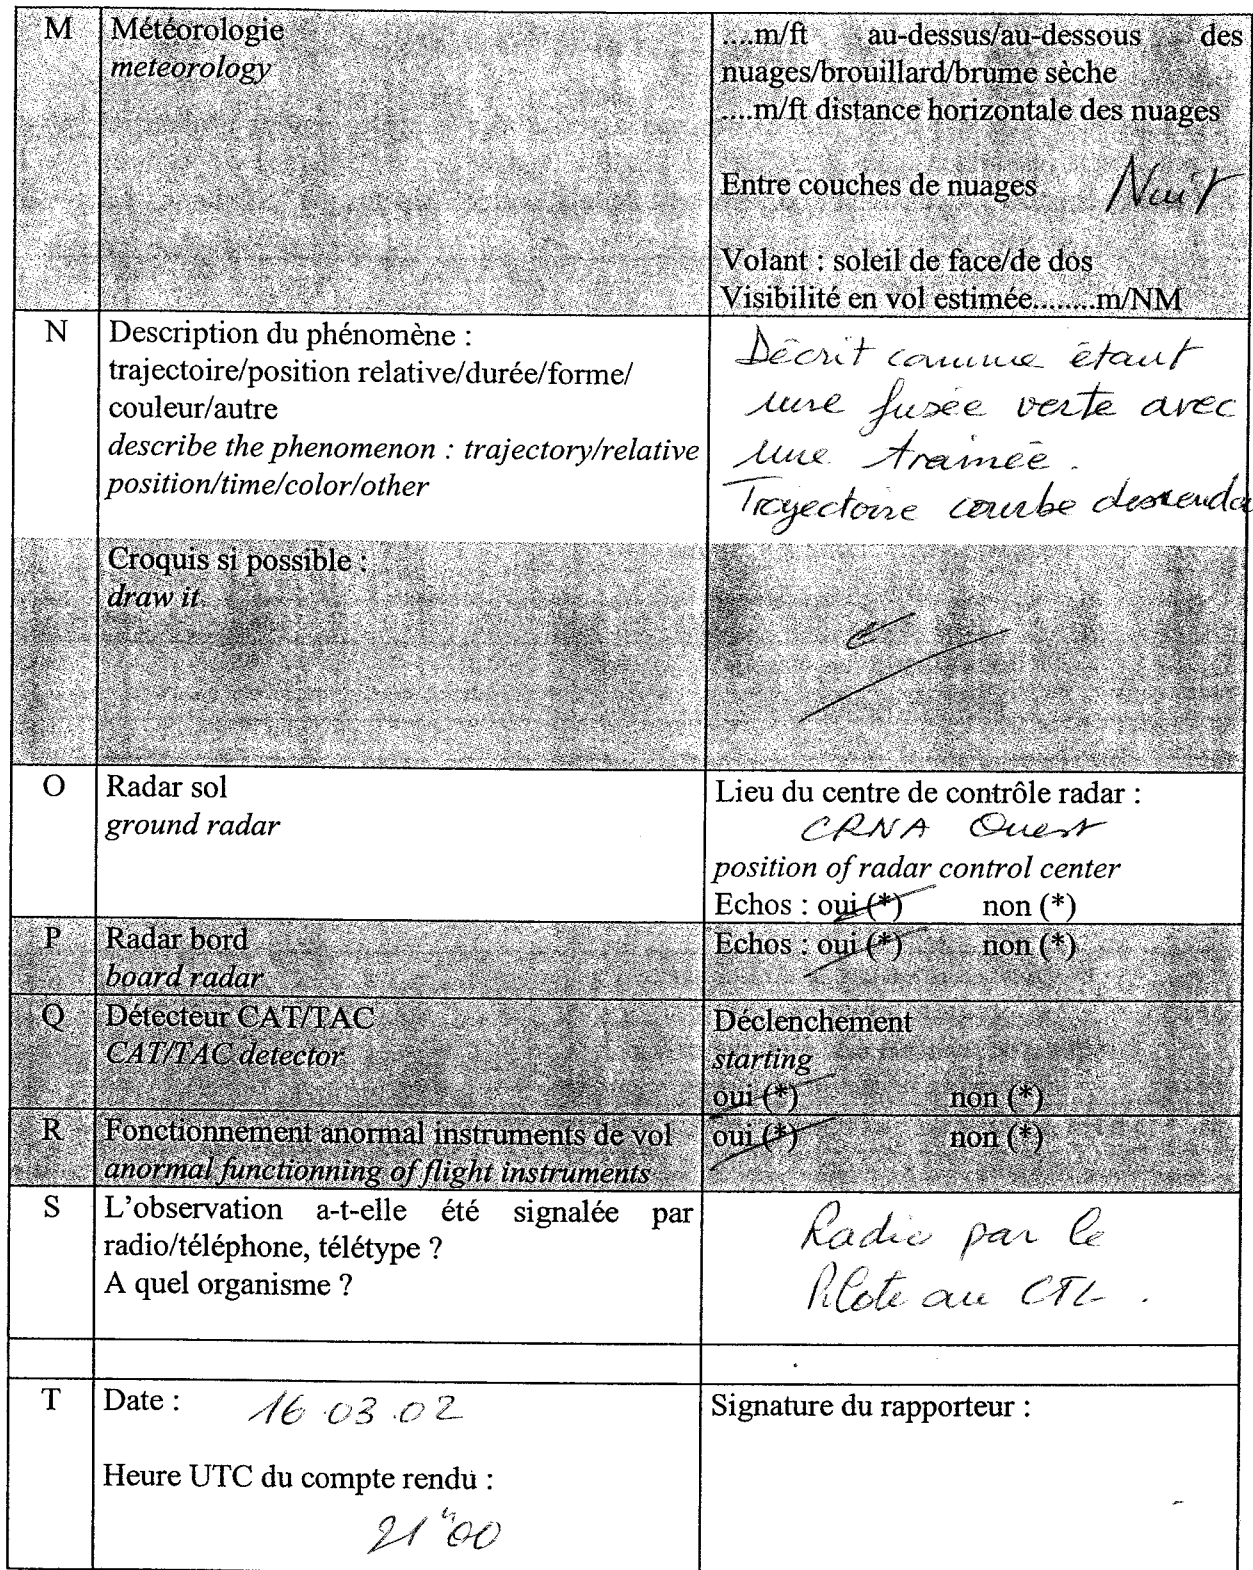 M
Météorologie
meteorology
....m/ft au-dessus/au-dessous des
nuages/brouillard/brume sèche
....m/ft distance horizontale des nuages
Entre couches de nuages Nuit
Volant : soleil de face/de dos
Visibilité en vol estimée........m/NM
N
Description du phénomène :
trajectoire/position relative/durée/forme/
couleur/autre
describe the phenomenon : trajectory/relative
position/time/color/other
Décrit comme étant
une fusée verte avec
une trainée.
Trajectoire courbe descenda
Croquis si possible :
draw it
O
Radar sol
ground radar
Lieu du centre de contrôle radar :
CRNA Ouest
position of radar control center
Echos : oui (*) non (*)
P
Radar bord
board radar
Echos : oui (*) non (*)
Q
Détecteur CAT/TAC
CAT/TAC detector
Déclenchement
starting
oui (*) non (*)
R
Fonctionnement anormal instruments de vol
anormal functionning of flight instruments
oui (*) non (*)
S
L'observation a-t-elle été signalée par
radio/téléphone, télétype ?
A quel organisme ?
Radio par le
Pilote au CTL .
T
Date : 16.03.02
Heure UTC du compte rendu :
21h00
Signature du rapporteur :